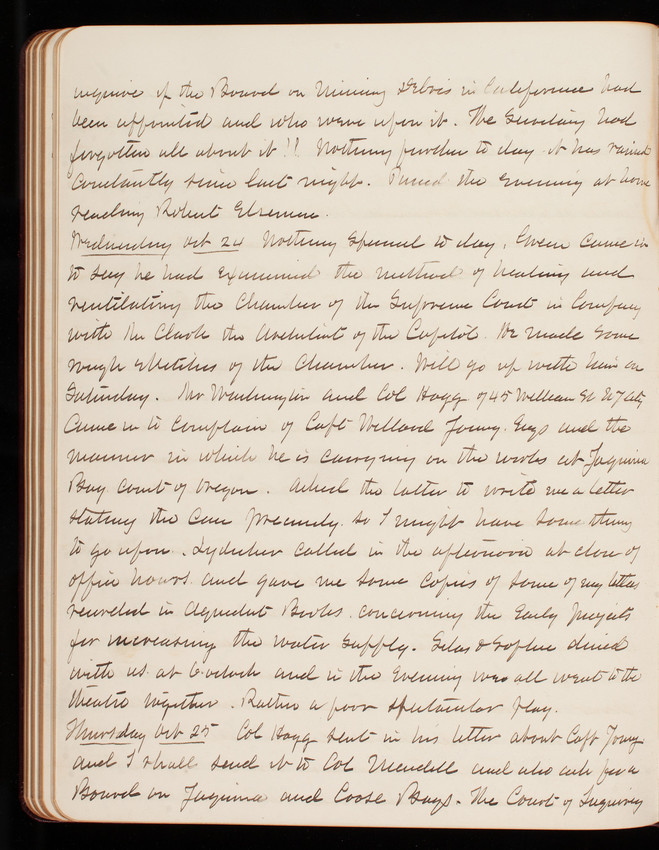 inquire if the Board on Mining Debris in California had
been appointed and who were upon it. The Secretary had
forgotten all about it !! Nothing further to day it has rained
Constantly since last night. Passed the evening at home
reading Robert Elsmere.
Wednesday Oct 24 Nothing special to day. Green came in
to say he had examined the method of heating and
ventilating the Chamber of the Supreme Court in Company
with Mr Clark the Architect of the Capitol. He made some
rough sketches of the Chamber. Will go up with him on
Saturday. Mr Washington and Col Hogg of 45 William St N.Y. City
Came in to complain of Capt Willard Young Engs and the
manner in which he is carrying on the works at Yaquina
Bay coast of Oregon. Asked the latter to write me a letter
stating the Case precisely so I might have something
to go upon. Lydecker called in the afternoon at close of
office hours and gave me some copies of some of my letters
recorded in Aqueduct Books concerning the Early projects
for increasing the water supply. Silas & Sophie dined
with us at 6 oclock and in the evening we all went to the
theatre together. Rather a poor spectacular play.
Thursday Oct 25 Col Hogg sent in his letter about Capt Young
and I shall send it to Col Mendell and also ask for a
Board on Yaquina and Coose Bays. The Court of Inquiry